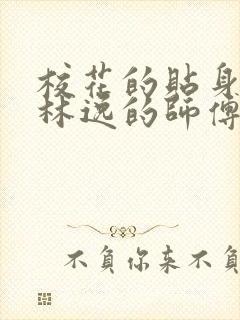 校花的貼身
林逸的師傅
不負你来不負